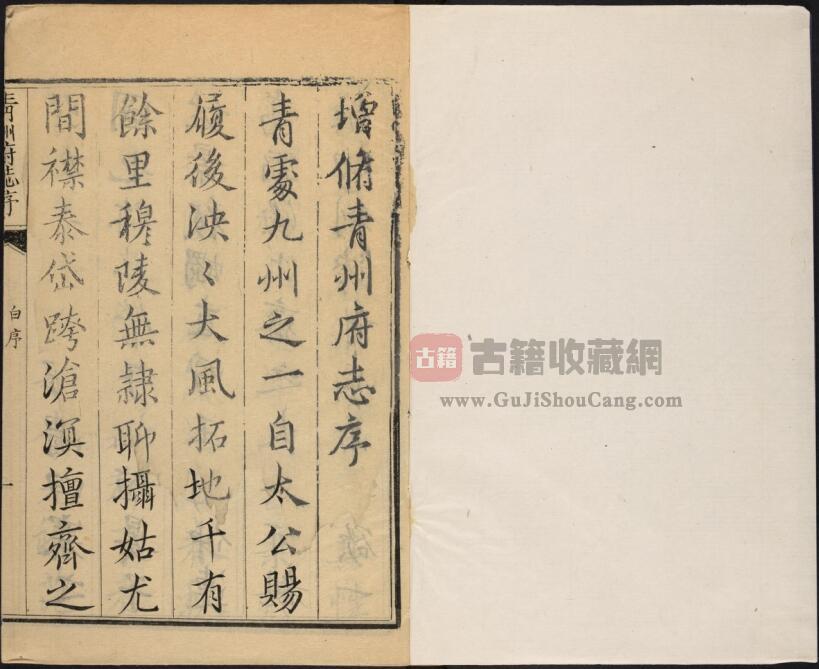 增脩青州府志序
青處九州之一自太公賜
履後泱〻大風拓地千有
餘里穆陵無隸聊攝姑尤
間襟泰岱跨滄溟擅齊之
青州府志序
白序
一
古籍
古籍收藏網
www.GuJiShouCang.com